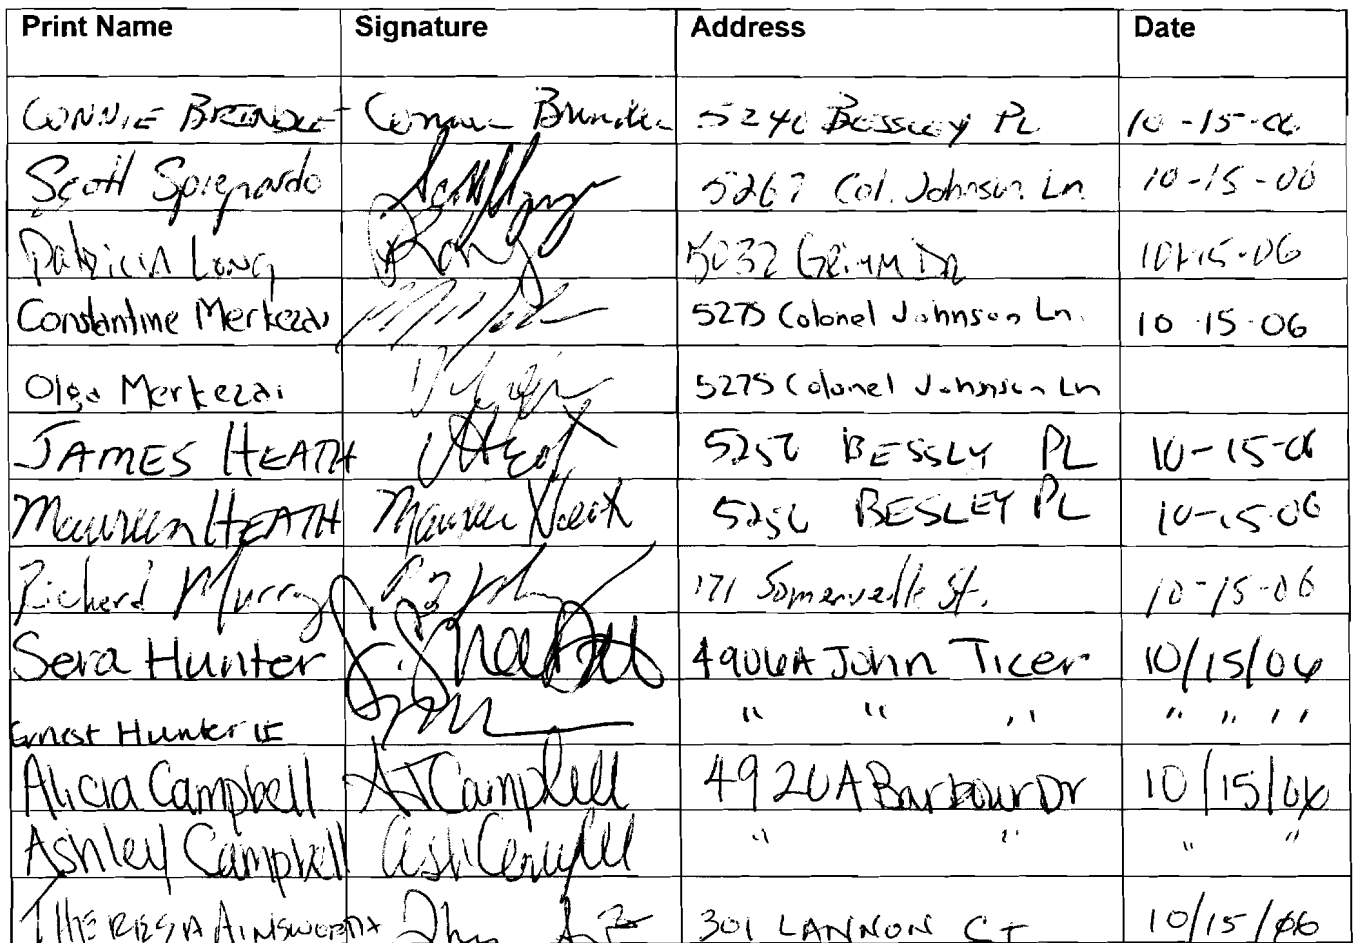 Print Name Signature Address Date
CONNIE BRINDLE Connie Brindle 5240 BESSLEY PL 10-15-06
Scott 5267 Col. Johnson Ln 10-15-06
Patricia Long 5032 GRIMM DR 10-15-06
Constantine Merkezas 5275 Colonel Johnson Ln. 10 15 06
Olga Merkezai 5275 Colonel Johnson Ln
JAMES HEATH 5256 BESSLY PL 10-15-06
Maureen HEATH Maureen Heath 5256 BESLEY PL 10-15-06
Richard Murray 171 Somervelle St. 10-15-06
Sera Hunter 4906A John Ticer 10/15/06
Ernest Hunter II " " " " " "
Alicia Campbell AJCampbell 4920A Barbour Dr 10/15/06
Ashley Campbell " " " "
THERESA AINSWORTH 301 LANNON CT 10/15/06